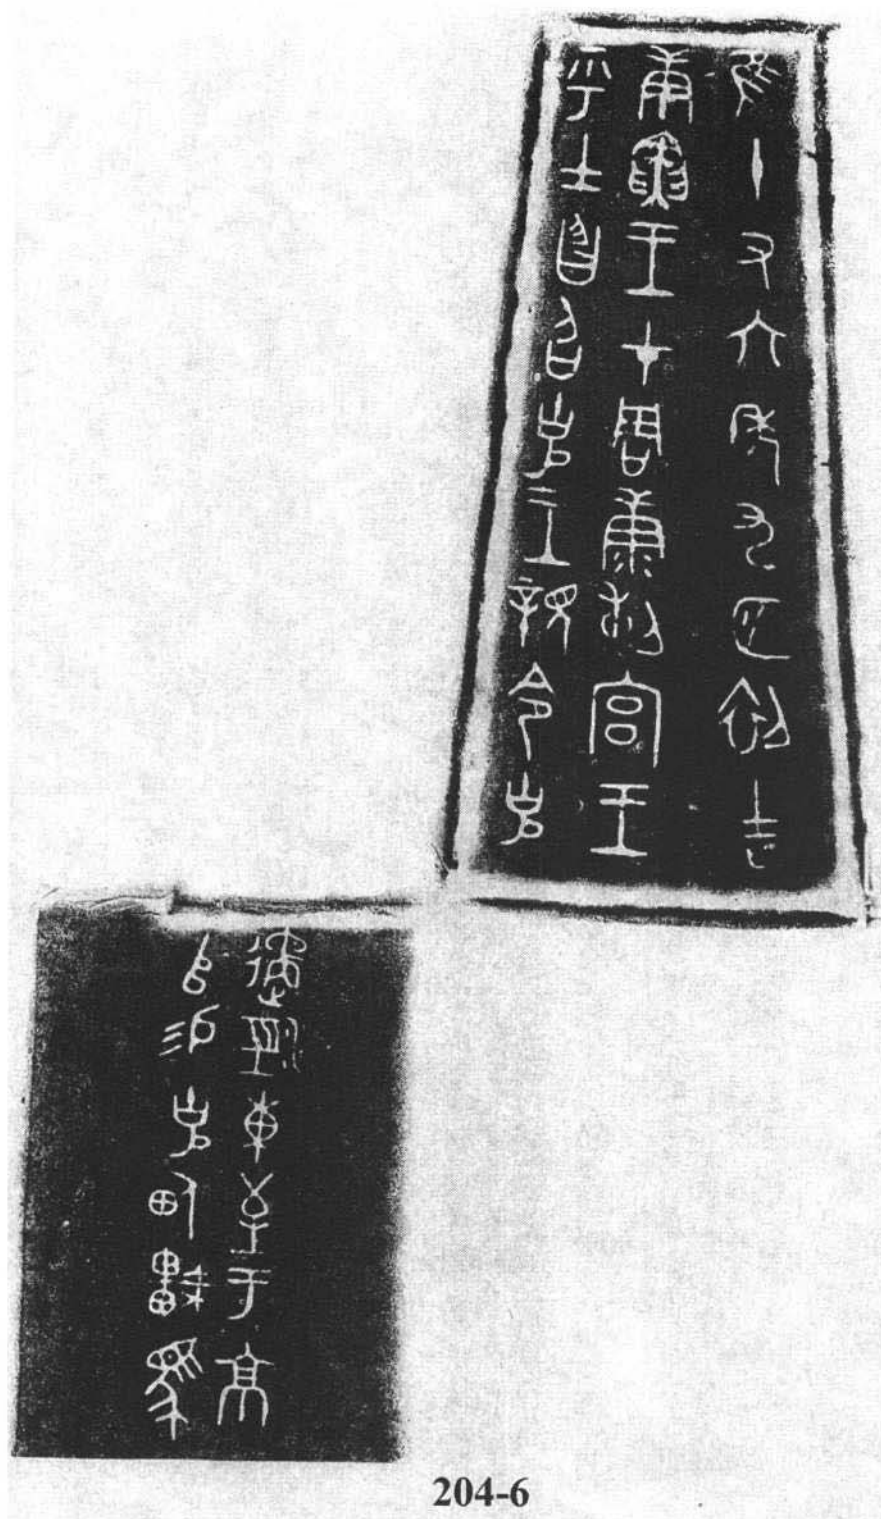 隹十又六年九月初吉
庚寅王才周康剌宮王
乎士曶召克王親令克
遹涇東至于京
𠂤易克佃車馬
204-6